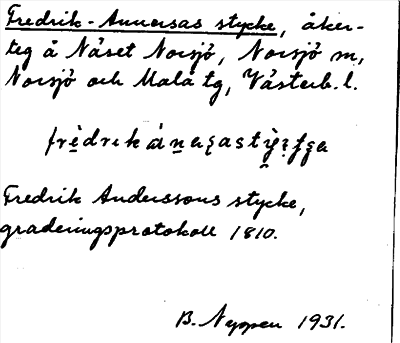 Fredrik-Annersas stycke, åker-
teg å Näset Norsjö, Norsjö sn,
Norsjö och Malå tg, Västerb. l.
Fredrik Anderssons stycke,
graderingsprotokoll 1810.
B. Nyppen 1931.